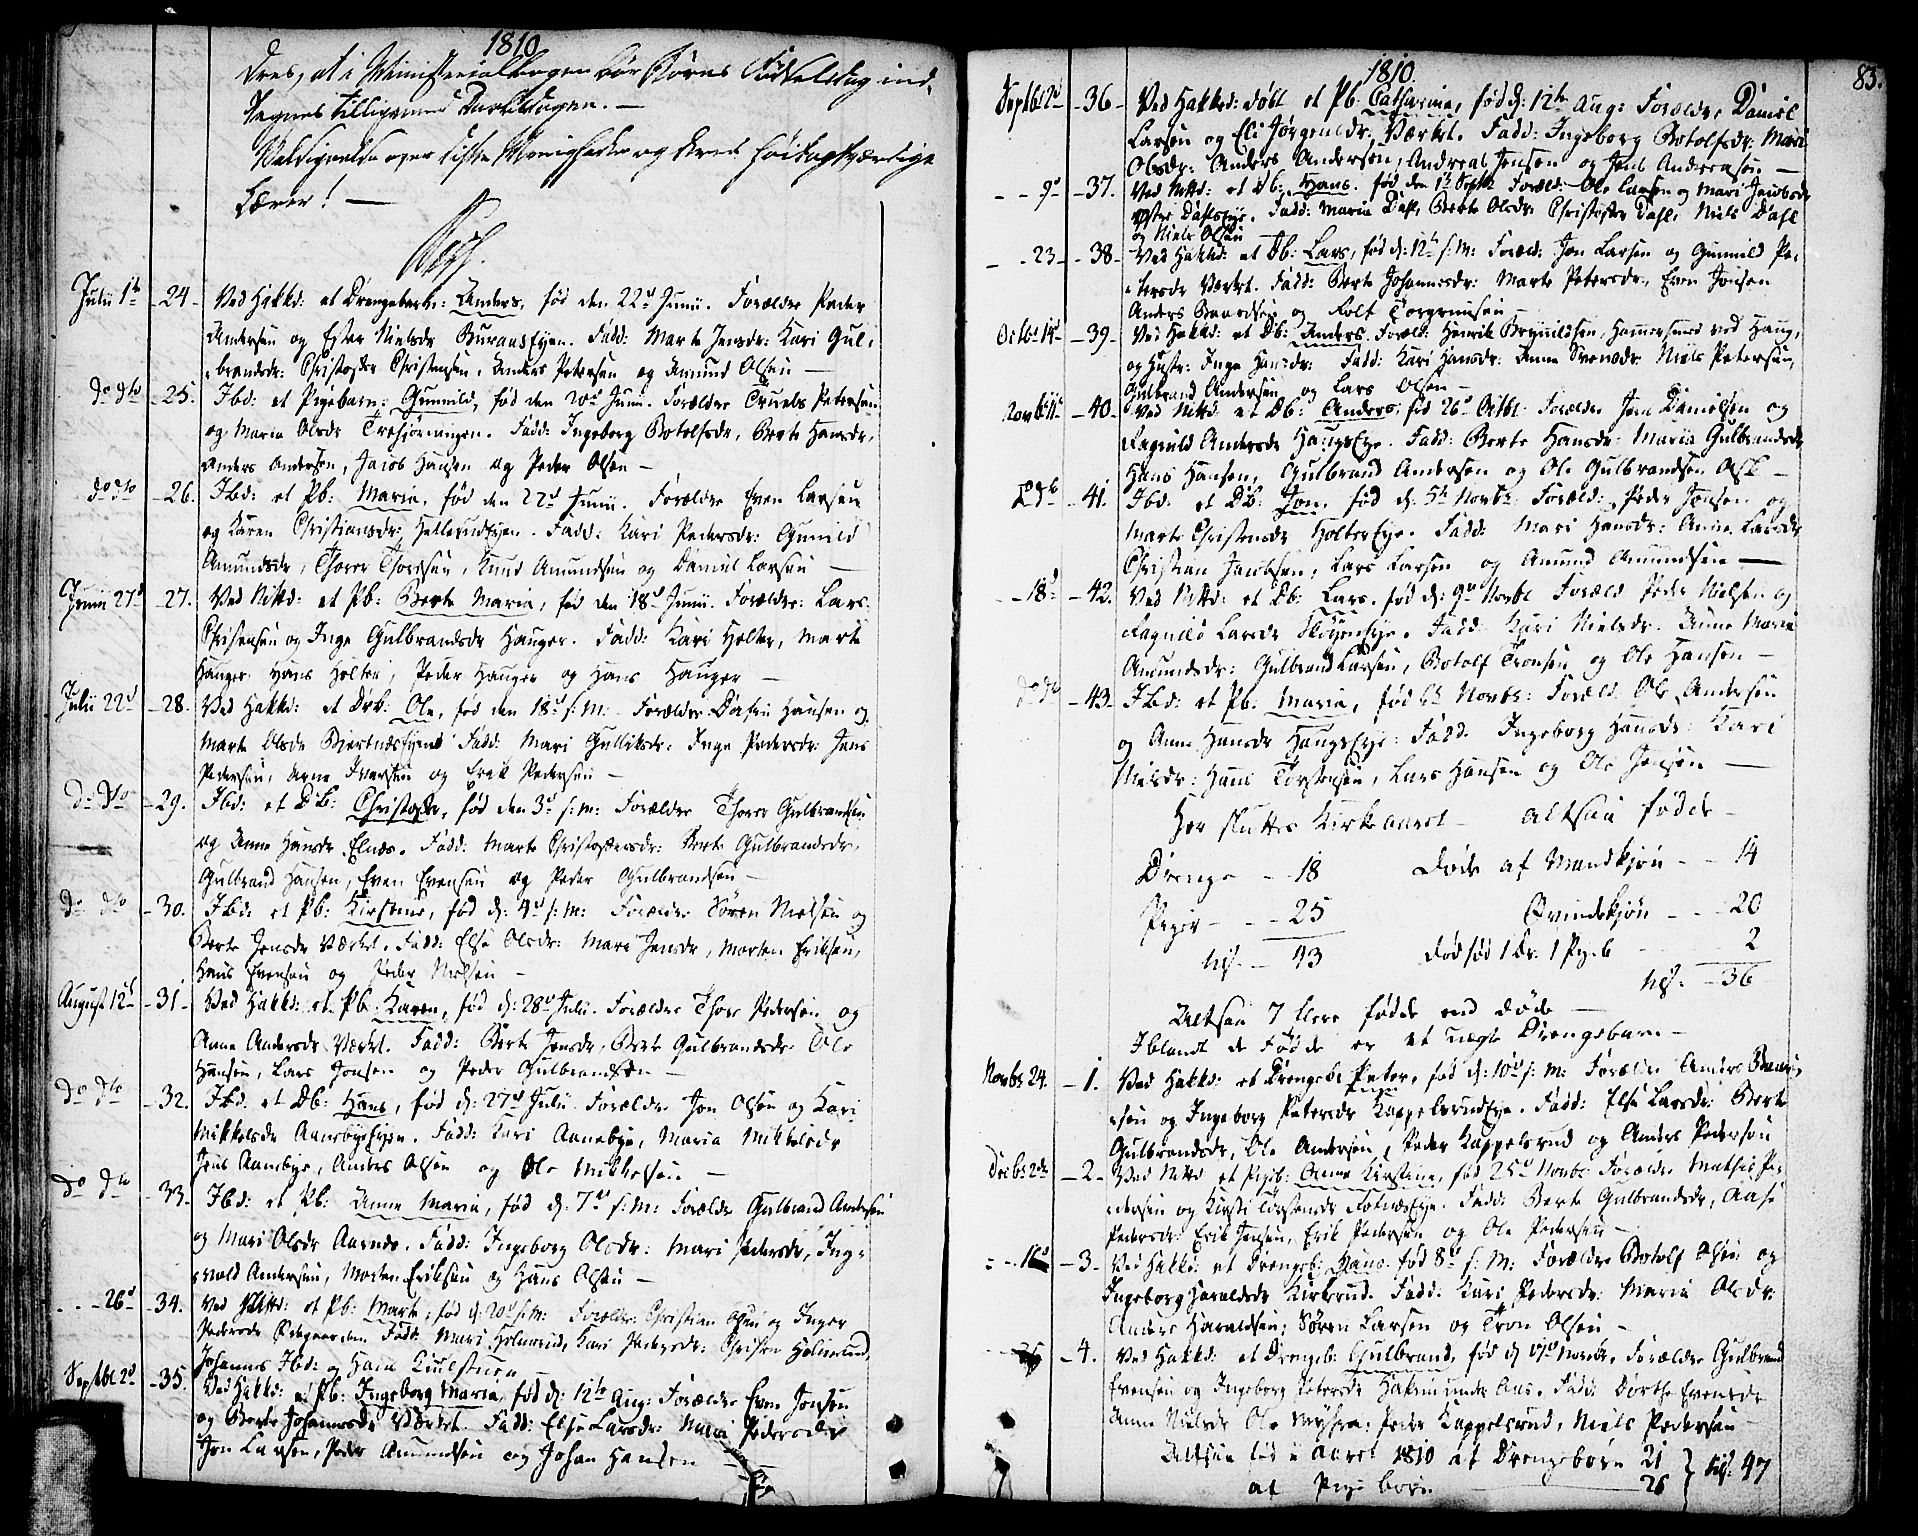 1810
dres, at i Ministerialbogen bør Børns Fødselsdag ind-
tegnes tilligemed Daabsdagen. —
Velsignelse over disse Menigheder og deres høitagtværdige
Lærer! —
Julii 1te -24- Ved Hakkd: et Drengebarn: Anders, fød den 22d Junii. Forældre Peder
Andersen og Ester Nielsdr Buraaseyen. Fadd: Marte Jensdr: Kari Gul-
brandsdr: Christopher Christensen, Anders Petersen og Amund Olsen —
do dto -25. Ibd: et Pigebarn: Gunnild, fød den 20d Junii. Forældre Truels Petersen
og Maria Olsdr Trehjørningen. Fadd: Ingeborg Botolfsdr, Berte Hansdr,
Anders Andersen, Jacob Hansen og Peder Olsen —
do dto -26. Ibd: et Pb: Maria, fød den 22d Junii. Forældre Even Larsen
og Karen Christiansdr: Hellerudeyen. Fadd: Kari Pedersdr: Gunild
Amundsdr, Thorer Thoresen, Knud Amundsen og Daniel Larsen —
Junii 27d -27. Ved Nittd: et Pb: Berte Maria, fød den 18d Junii. Forældre: Lars
Christensen og Inge Gulbrandsdr Hauger. Fadd: Kari Holter, Marte
Hauger Hans Holter, Peder Hauger og Hans Hauger —
Julii 22d -28. Ved Hakkd: et Drb: Ole, fød den 18d s: M: Forældre Hansen og
Marte Olsdr Bjertnæseyend Fadd: Mari Gulliksdr: Inge Pedersdr: Jens
Pedersen, Arne Iversen og Erik Pedersen —
do dto -29. Ibd: et DB: Christopher, fød den 3d s: M: Forældre Thorer Gulbrandsen
og Anne Hansdr Elnæs. Fadd: Marte Christophersdr: Berte Gulbrandsdr,
Gulbrand Hansen, Even Evensen og Peder Gulbrandsen —
do dto -30. Ibd: et Pb: Kirstine, fød d: 4d s: M: Forældre Søren Nielsen og
Berte Jensdr Værket. Fadd: Else Olsdr: Mari Jensdr, Morten Eriksen,
Hans Evensen og Peder Nielsen —
August 12t -31- Ved Hakkd: et Pb: Karen, fød d: 28d Julii. Forældre Thore Pedersen og
Anne Andersdr Værket. Fadd: Berte Jensdr, Berte Gulbrandsdr Ole
Hansen, Lars Jonsen og Peder Gulbrandsen —
do dto -32. Ibd: et Db: Hans, fød d: 27d Julii Forældre Jon Olsen og Kari
Mikkelsdr Aanebyeeyen. Fadd: Kari Aanebye, Maria Mikkelsdr
Jens Aanebye, Anders Olsen og Ole Mikkelsen. —
do dto -33. Ibd: et Pb: Anne Maria, fød d: 7d s: M: Forældre Gulbrand Andersen
og Mari Olsdr Aarnes. Fadd: Ingeborg Olsdr: Mari Pedersdr, Ing-
vald Andersen, Morten Eriksen og Hans Olsen —
- - -26d -34. Ved Nittd: et Pb: Marte, fød d: 20d s: M: Forældre Christian Olsen og Inger
Pedersdr Ødegaarden Fadd: Mari Holmerud, Kari Pedersdr: Christen Holmerud
Johannes Ibd: og
Septbr 2d -35. Ved Hakkd: et Pb: Ingeborg Maria, fød d: 12te Aug: Forældre Even Jonsen
og Berte Johannesdr Værket. Fadd: Else Larsdr: Mari Pedersdr
Jon Larsen, Peder Amundsen og Johan Hansen —
1810. 83.
Septbr 2d -36- Ved Hakkd: døbt et Pb. Catharina, fød d: 12te Aug: Forældre Daniel
Larsen og Eli Jørgensdr. Værket. Fadd: Ingeborg Botolfsdr: Mari
Olsdr: Anders Andersen, Andreas Jensen og Andersen —
- - 9d -37. Ved Nittd: et Db: Hans. fød den 1ste Septbr Foræld: Ole Larsen og Mari Jacobsdr
Dahlseye. Fadd: Maria Dahl, Berte Olsdr Christopher Dahl, Niels Dahl
og Niels Olsen
- - 23 - -38- Ved Hakkd: et Db: Lars, fød d: 12te s: M: Foræld: Jon Larsen og Gunnild Pe-
tersdr Værket. Fadd: Berte Johannesdr: Marte Petersdr, Even Jonsen
Anders Baardsen og Rolf Torgrimsen
Octbr 14d -39- Ved Hakkd: et Db: Anders. Foræld: Henrik Brynildsen, Hammersmed ved Haug,
og Hustr: Inge Hansdr: Fadd: Kari Hansdr: Anne Svensdr Niels Petersen,
Gulbrand Andersen og Lars Olsen —
Novb: 11te -40- Ved Nittd et Db: Anders, fød 26d Octbr: Forældre Jens Danielsen og
Ragnild Andersdr Haugseye. Fadd: Berte Hansdr: Maria Gulbrandsdr
Hans Hansen, Gulbrand Andersen og Ole Gulbrandsen —
do dto -41. Ibd: et DB: Jon. fød d: 5te Novbr. Foræld: Peder Jensen og
Marte Christensdr Holtereye. Fadd: Mari Hansdr: Anne Larsdr
Christian Jacobsen, Lars Larsen og Amund Amundsen —
- - 18d -42. Ved Nittd: et Db: Lars. fød d: 9de Novbr Foræld Peder Nielsen og
Ragnild Larsdr Sløyeneye. Fadd Kari Nielsdr. Anne Maria
Amundsdr: Gulbrand Larsen, Botolf Tronsen og Ole Hansen —
do dto -43- Ibd: et Pb. Maria, fød Novbr: Foræld Ole Andersen
og Anne Hansdr Haugseye: Fadd. Ingeborg Hansdr: Kari
Nielsdr: Hans Torstensen, Lars Hansen og Ole Jensen —
Her slutter Kirkeaaret — altsaa fødde —
Drenge - - 18 Døde af Mandkjøn - - 14
Piger - - - 25 Qvindekjøn - - - 20
dødfød 1 Dr. 1 Pigeb - 2
43 36
Altsaa 7 flere fødde end døde —
Iblandt de Fødde er et uægte Drengebarn —
Novbr 24. -1. Ved Hakkd: et Drengeb: Peter, fød d: 10de s: M: Forældre Anders
-sen og Ingeborg Petersdr Kappelsrudeye. Fadd: Else Larsdr: Berte
Gulbrandsdr, Ole Andersen, Peder Kappelsrud og Anders Pedersen
Decbr 2den -2- Ved Nittd et Pigeb: Anne Kirstine, fød 25d Novbr: Forældre Mathis Pe-
dersen og Kirsti Torstensdr Folnæseye. Fadd: Berte Gulbrandsdr, Aase
Pedersdr: Erik Jensen, Erik Pedersen og Ole Pedersen —
- - 16d -3- Ved Hakkd: et Drengeb: Hans. fød 8d s: M: Forældre Botolf Olsen og
Ingeborg Haraldsdr Kirkerud. Fadd: Kari Pedersdr: Maria Olsdr
Anders Haraldsen, Søren Larsen og Tron Olsen —
-4. Ved Hakkd: et Drengeb: Gulbrand, fød d 17de Novbr. Forældre Gulbrand
Evensen og Ingeborg Petersdr Hakemunder Aas. Fadd: Dorthe Evensdr
Anne Nielsdr Ole Myhre, Peder Kappelsrud, Niels Pedersen
Altsaa fød i Aaret 1810 af Drengebørn 21
af Pigebørn — 26 } 47